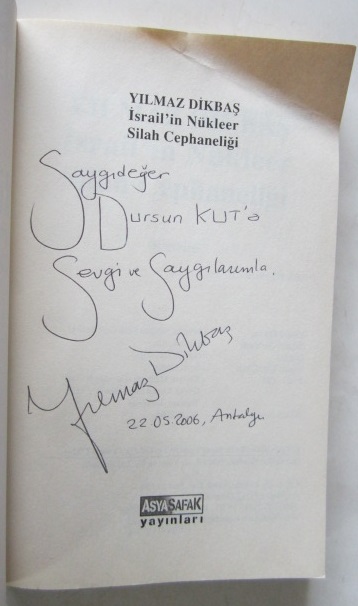 YILMAZ DİKBAŞ
İsrail'in Nükleer
Silah Cephaneliği
Saygıdeğer
Dursun KUT'a
Sevgi ve Saygılarımla.
Yılmaz Dikbaş
22.05.2006, Antalya
ASYA ŞAFAK
yayınları